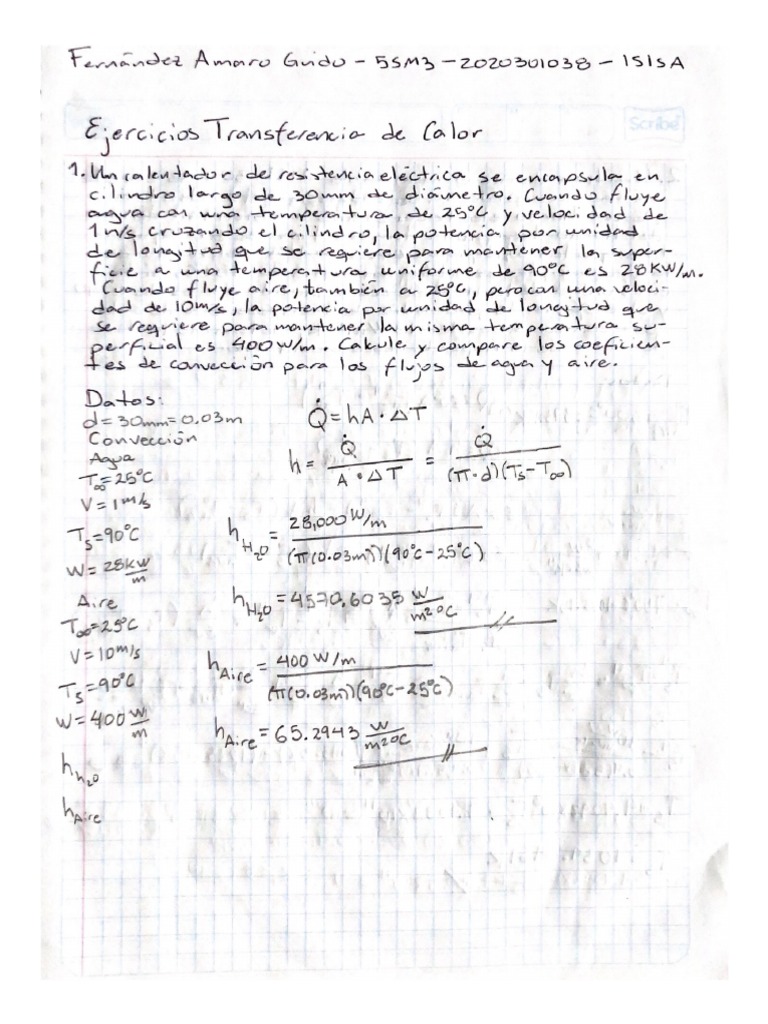 Fernández Amaro Guido - 5SM3 - 2020301038 - ISISA
Scribe
Ejercicios Transferencia de Calor
1. Un calentador de resistencia eléctrica se encapsula en
cilindro largo de 30mm de diámetro. Cuando fluye
agua con una temperatura de 25°C y velocidad de
1 m/s cruzando el cilindro, la potencia por unidad
de longitud que se requiere para mantener la super-
ficie a una temperatura uniforme de 90°C es 28KW/m.
Cuando fluye aire, también a 25°C, pero con una veloci-
dad de 10m/s, la potencia por unidad de longitud que
se requiere para mantener la misma temperatura su-
perficial es 400 W/m. Calcule y compare los coeficien-
tes de convección para los flujos de agua y aire.
Datos:
d = 30mm = 0.03m
Convección
Agua
T∞ = 25°C
V = 1 m/s
Ts = 90°C
W = 28 kW/m
Aire
T∞ = 25°C
V = 10 m/s
Ts = 90°C
W = 400 W/m
h_H2O
h_Aire
Q̇ = hA · ΔT
h = Q̇ / (A · ΔT) = Q̇ / ((π · d)(Ts - T∞))
h_H2O = 28,000 W/m / ((π(0.03m))(90°C - 25°C))
h_H2O = 4570,6035 W/m²°C
h_Aire = 400 W/m / ((π(0.03m))(90°C - 25°C))
h_Aire = 65.2943 W/m²°C